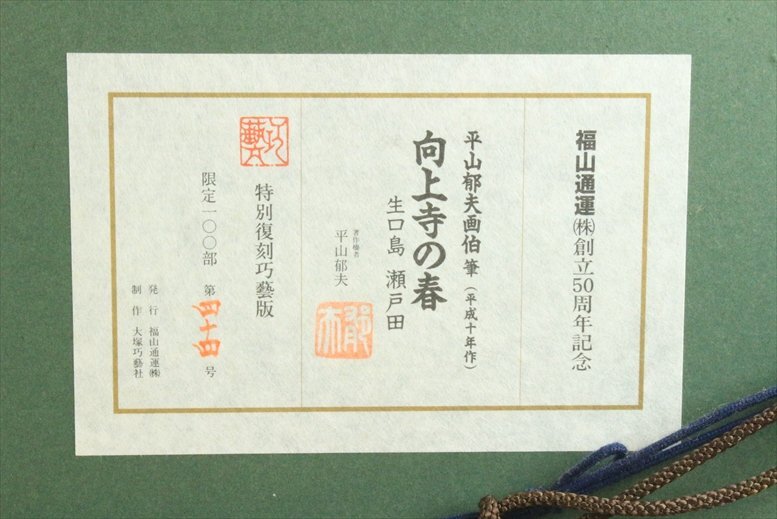 福山通運㈱創立50周年記念
平山郁夫画伯筆（平成十年作）
向上寺の春
生口島 瀬戸田
著作権者
平山郁夫
特別復刻巧藝版
限定一〇〇部 第四十四号
発行 福山通運㈱
制作 大塚巧藝社